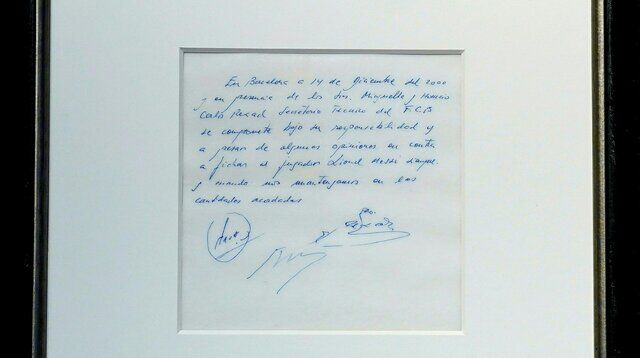 En Barcelona a 14 de diciembre del 2000
y en presencia de los Sres. Minguella y Horacio
Carlos Rexach Secretario Técnico del F.C.B
se compromete bajo su responsabilidad y
a pesar de algunas opiniones en contra
a fichar al jugador Lionel Messi siempre
y cuando nos mantengamos en las
cantidades acordadas